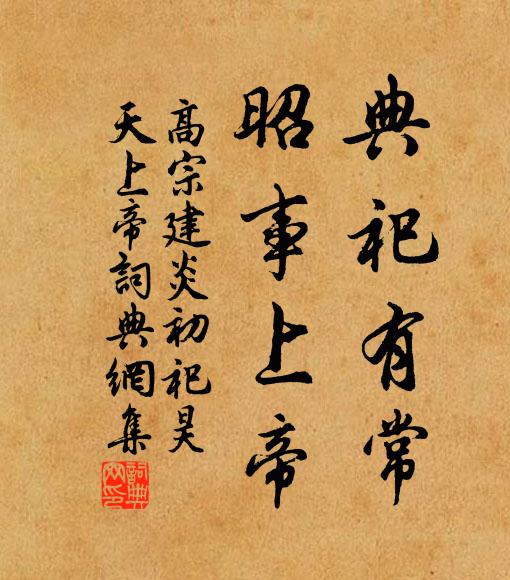 典祀有常
昭事上帝
高宗建炎初祀昊
天上帝詞典網集
詞典網印